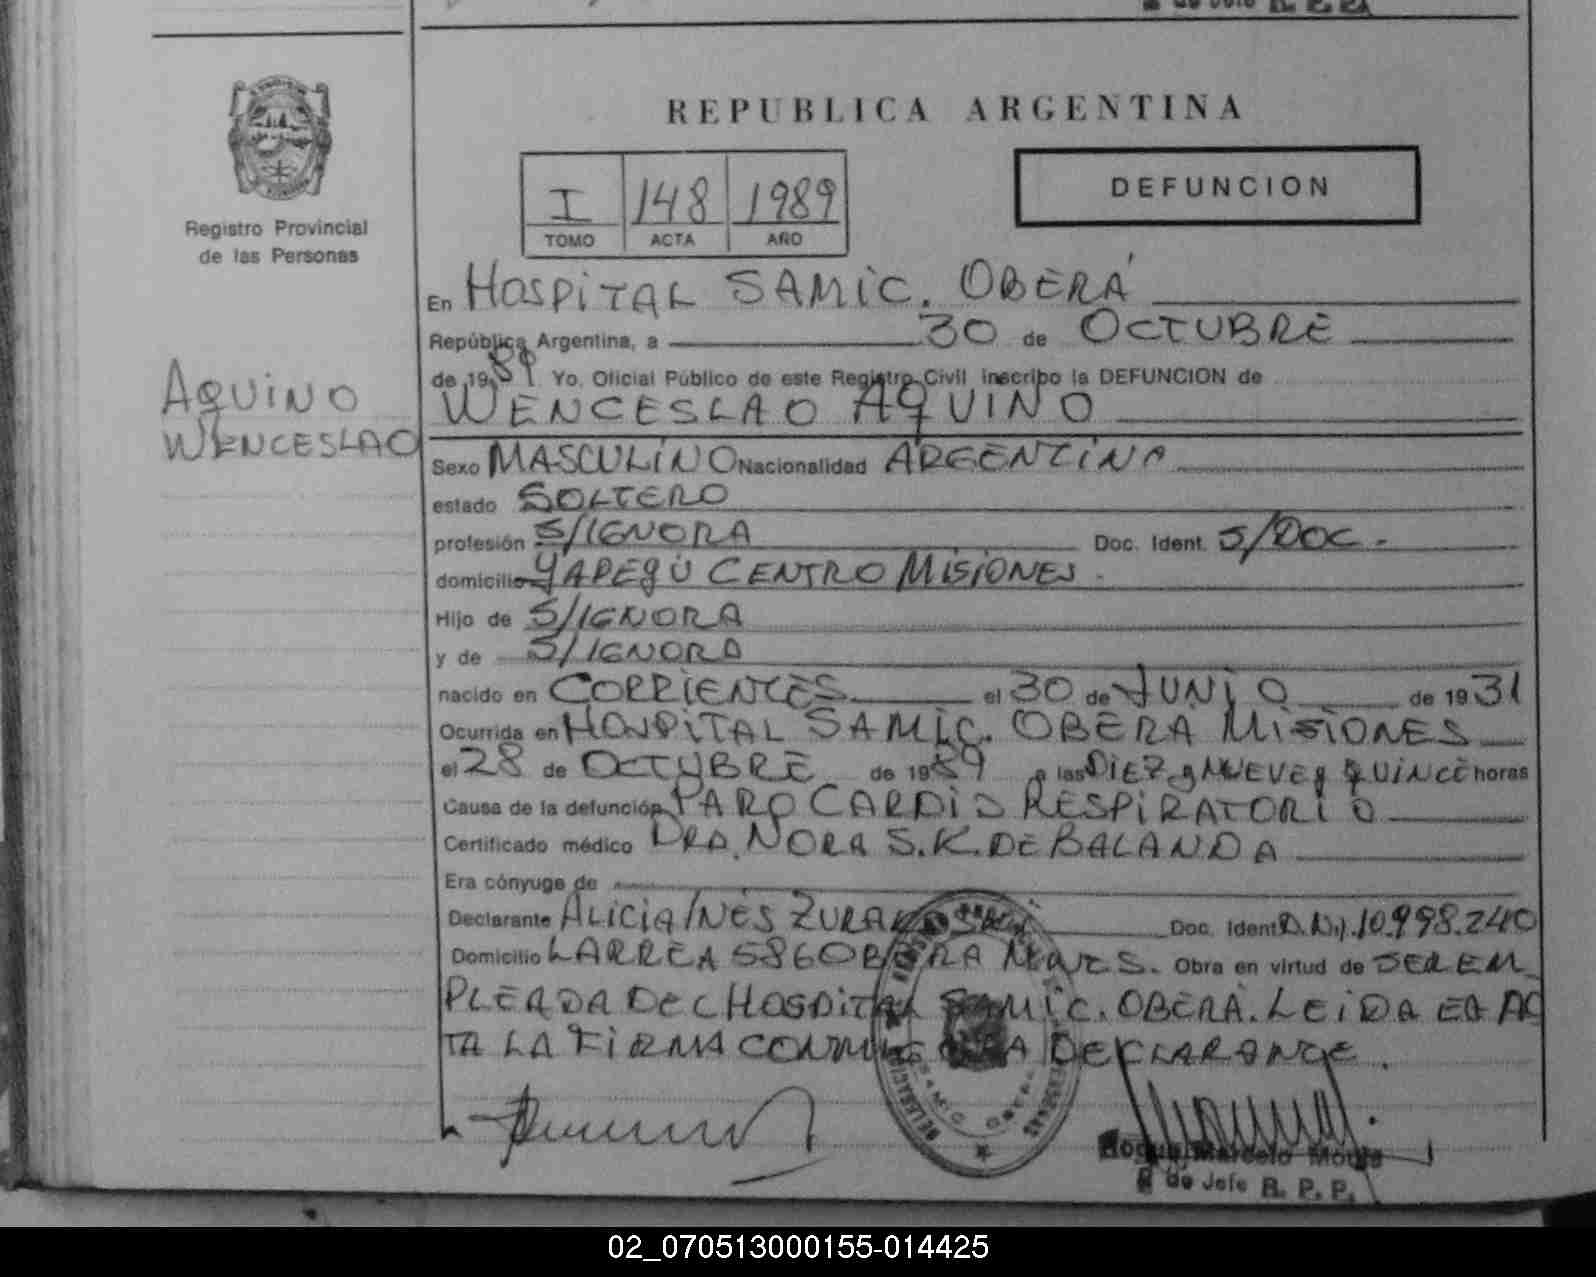 de Jefe R. P. P.
REPUBLICA ARGENTINA
I 148 1989
TOMO ACTA AÑO
DEFUNCION
Registro Provincial
de las Personas
AQUINO
WENCESLAO
En HOSPITAL SAMIC. OBERÁ
República Argentina, a 30 de OCTUBRE
de 1989 Yo, Oficial Público de este Registro Civil inscribo la DEFUNCION de
WENCESLAO AQUINO
Sexo MASCULINO Nacionalidad ARGENTINA
estado SOLTERO
profesión S/IGNORA Doc. Ident. S/DOC.
domicilio YAPEYÚ CENTRO MISIONES.
Hijo de S/IGNORA
y de S/IGNORA
nacido en CORRIENTES el 30 de JUNIO de 1931
Ocurrida en HOSPITAL SAMIC. OBERA MISIONES
el 28 de OCTUBRE de 1989 a las DIEZ y NUEVE y QUINCE horas
Causa de la defunción PARO CARDIO RESPIRATORIO
Certificado médico DRA. NORA S.K. DE BALANDA
Era cónyuge de
Declarante ALICIA INES Doc. Ident D.N.I. 10.998.240
Domicilio LARREA 586 OBERA MNES. Obra en virtud de SER EM
PLEADA DEL HOSPITAL SAMIC. OBERÁ. LEIDA EL AC
TA LA FIRMA CONMIGO LA DECLARANTE.
Roque Marcelo
de Jefe R. P. P.
02_070513000155-014425